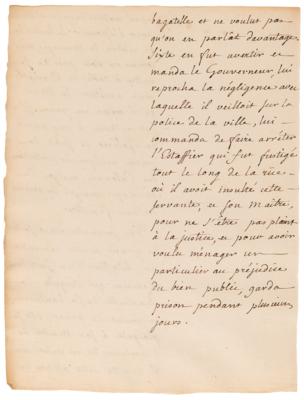 bagatelle et ne voulut pas
qu'on en parlât davantage.
Sixte en fut avertir et
manda le Gouverneur, lui
reprocha la négligence avec
laquelle il veilloit sur la
police de la ville, lui
commanda de faire arrêter
l'Estaffier qui fut fustigé
tout le long de la rue
où il avoit insulté cette
servante, et son maitre,
pour ne s'être pas plaint
à la justice, et pour avoir
voulu ménager un
particulier au préjudice
du bien public, garda
prison pendant plusieurs
jours.